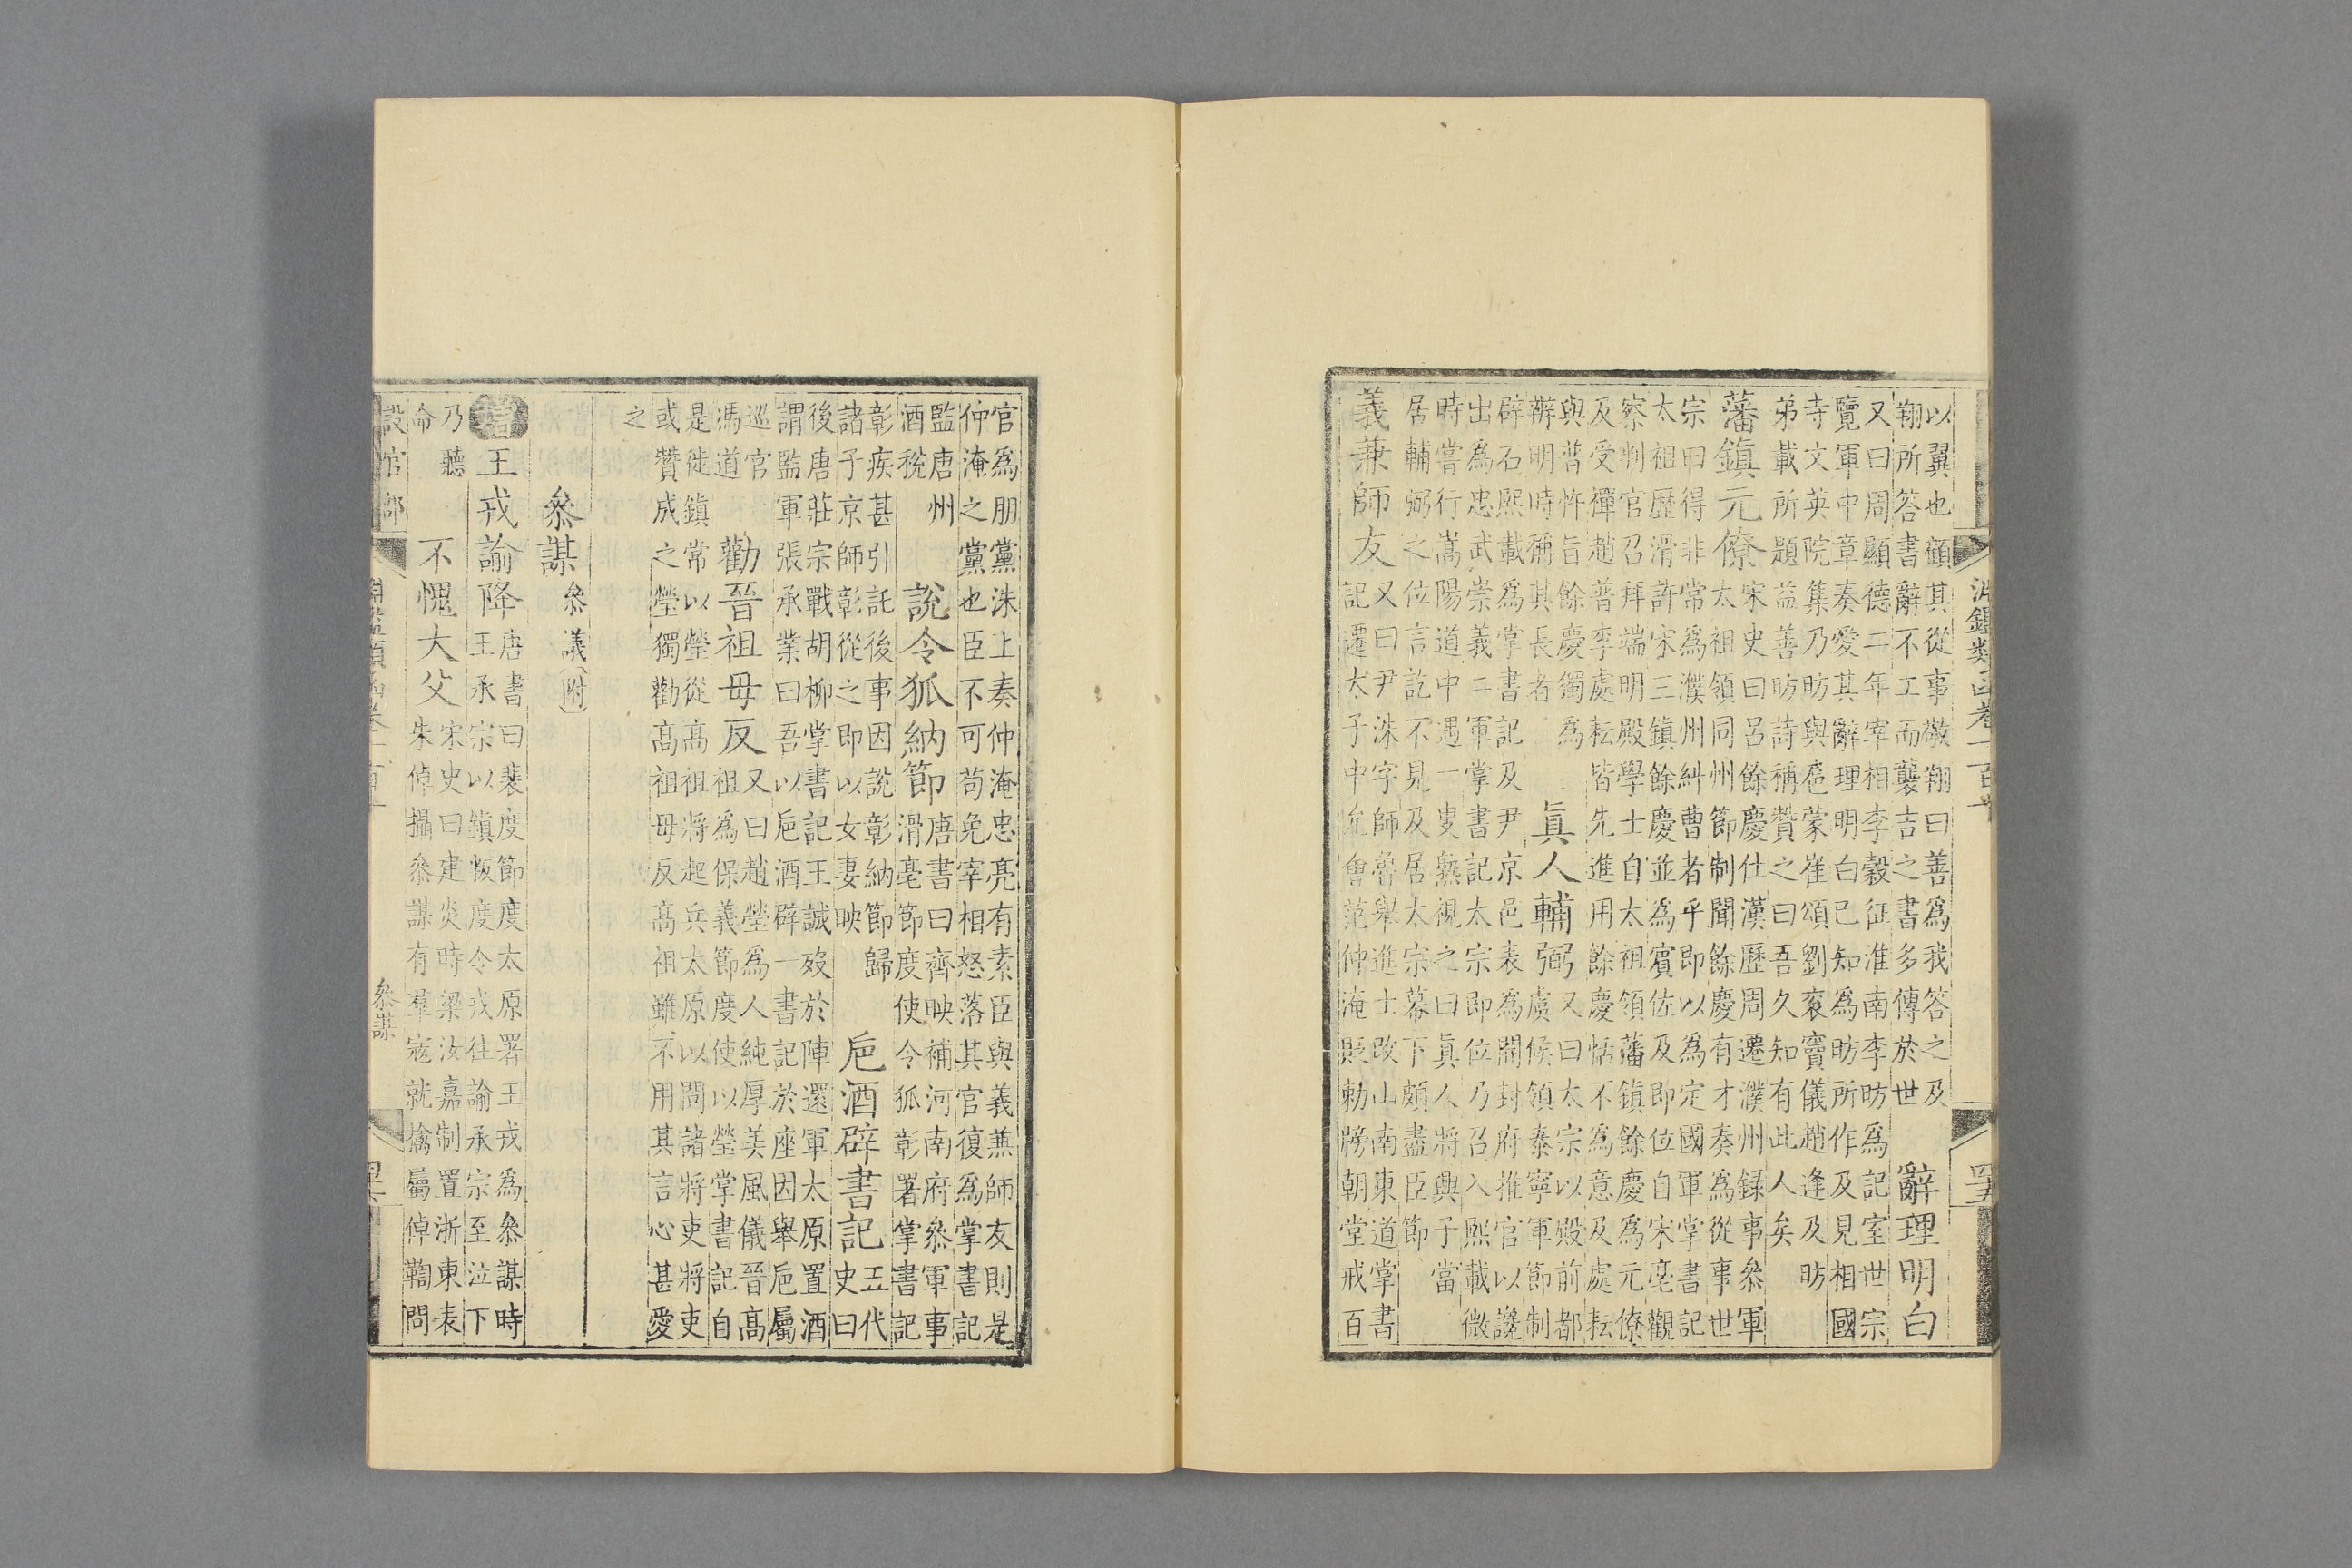 淵鑑類函卷一百十
四五
以翼也顧其從事敬翔曰善爲我答之及
翔所答書辭不工而襲吉之書多傳於世
辭理明白
又曰周顯德二年宰相李穀征淮南李昉爲記室世宗
覽軍中章奏愛其辭理明白已知爲昉所作及見相國
寺文英院集乃昉與扈蒙崔頌劉袞竇儀趙逢及昉
弟載所題益善昉詩稱贊之曰吾久知有此人矣
藩鎮元僚
宋史曰呂餘慶仕漢歷周遷濮州錄事參軍
太祖領同州節制聞餘慶有才奏爲從事世
宗曰得非常爲濮州糾曹者乎即以爲定國軍掌書記
太祖歷滑許宋三鎮餘慶並爲賓佐及即位自宋亳觀
察判官召拜端明殿學士自太祖領藩鎮餘慶爲元僚
及受禪趙普李處耘皆先進用餘慶恬不爲意及處耘
與普忤旨餘慶獨爲
辦明時稱其長者
眞人輔弼
又曰太宗以殿前都
虞候領泰寧軍節制
辟石熙載爲掌書記及尹京邑表爲開封府推官以讒
出爲忠武崇義二軍掌書記太宗即位乃召入熙載微
時嘗行嵩陽道中遇一叟熟視之曰眞人將興子當
居輔弼之位言訖不見及居太宗幕下頗盡臣節
義兼師友
又曰尹洙字師魯舉進士改山南東道掌書
記遷太子中允會范仲淹貶勅牓朝堂戒百
官爲朋黨洙上奏仲淹忠亮有素臣與義兼師友則是
仲淹之黨也臣不可苟免宰相怒落其官復爲掌書記
監唐州
酒稅
說令狐納節
唐書曰齊映補河南府參軍事
滑亳節度使令狐彰署掌書記
彰疾甚引託後事因說彰納節歸
諸子京師彰從之即以女妻映
巵酒辟書記
五代
史曰
後唐莊宗戰胡柳掌書記王誠歿於陣還軍太原置酒
謂監軍張承業曰吾以巵酒辟一書記於座因舉巵屬
巡官
馮道
勸晉祖毋反
又曰趙瑩爲人純厚美風儀晉高
祖爲保義節度使以瑩掌書記自
是徙鎮常以瑩從高祖將起兵太原以問諸將吏將吏
或贊成之瑩獨勸高祖毋反高祖雖不用其言心甚愛
之
參謀 參議附
增王戎諭降
唐書曰裴度節度太原署王戎爲參謀時
王承宗以鎮叛度令戎往諭承宗至泣下
乃聽
命
不愧大父
宋史曰建炎時梁汝嘉制置浙東表
朱倬攝參謀有羣寇就擒屬倬鞫問
設官部
淵鑑類函卷一百十
參謀